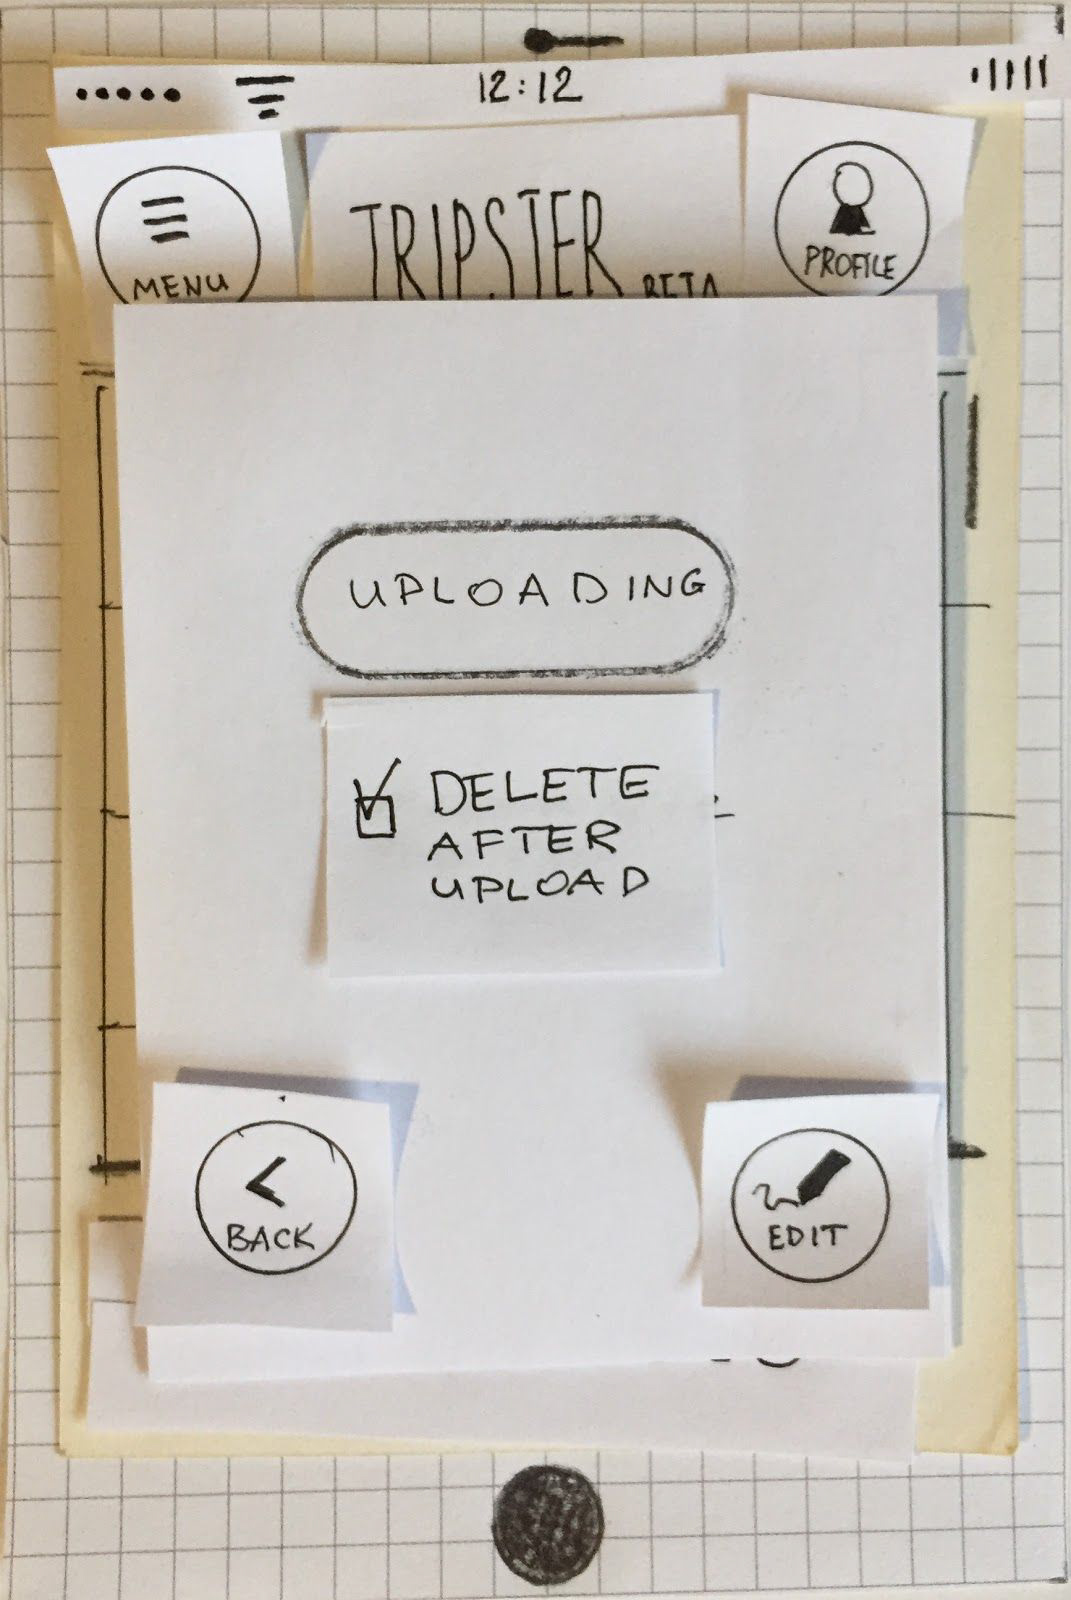 12:12
MENU
TRIPSTER BETA
PROFILE
UPLOADING
DELETE
AFTER
UPLOAD
BACK
EDIT